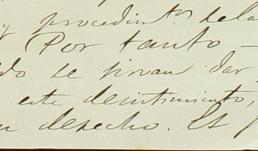 y procedimtos de la
Por tanto —
do se sirvan dar
este desistimiento,
n derecho. Es